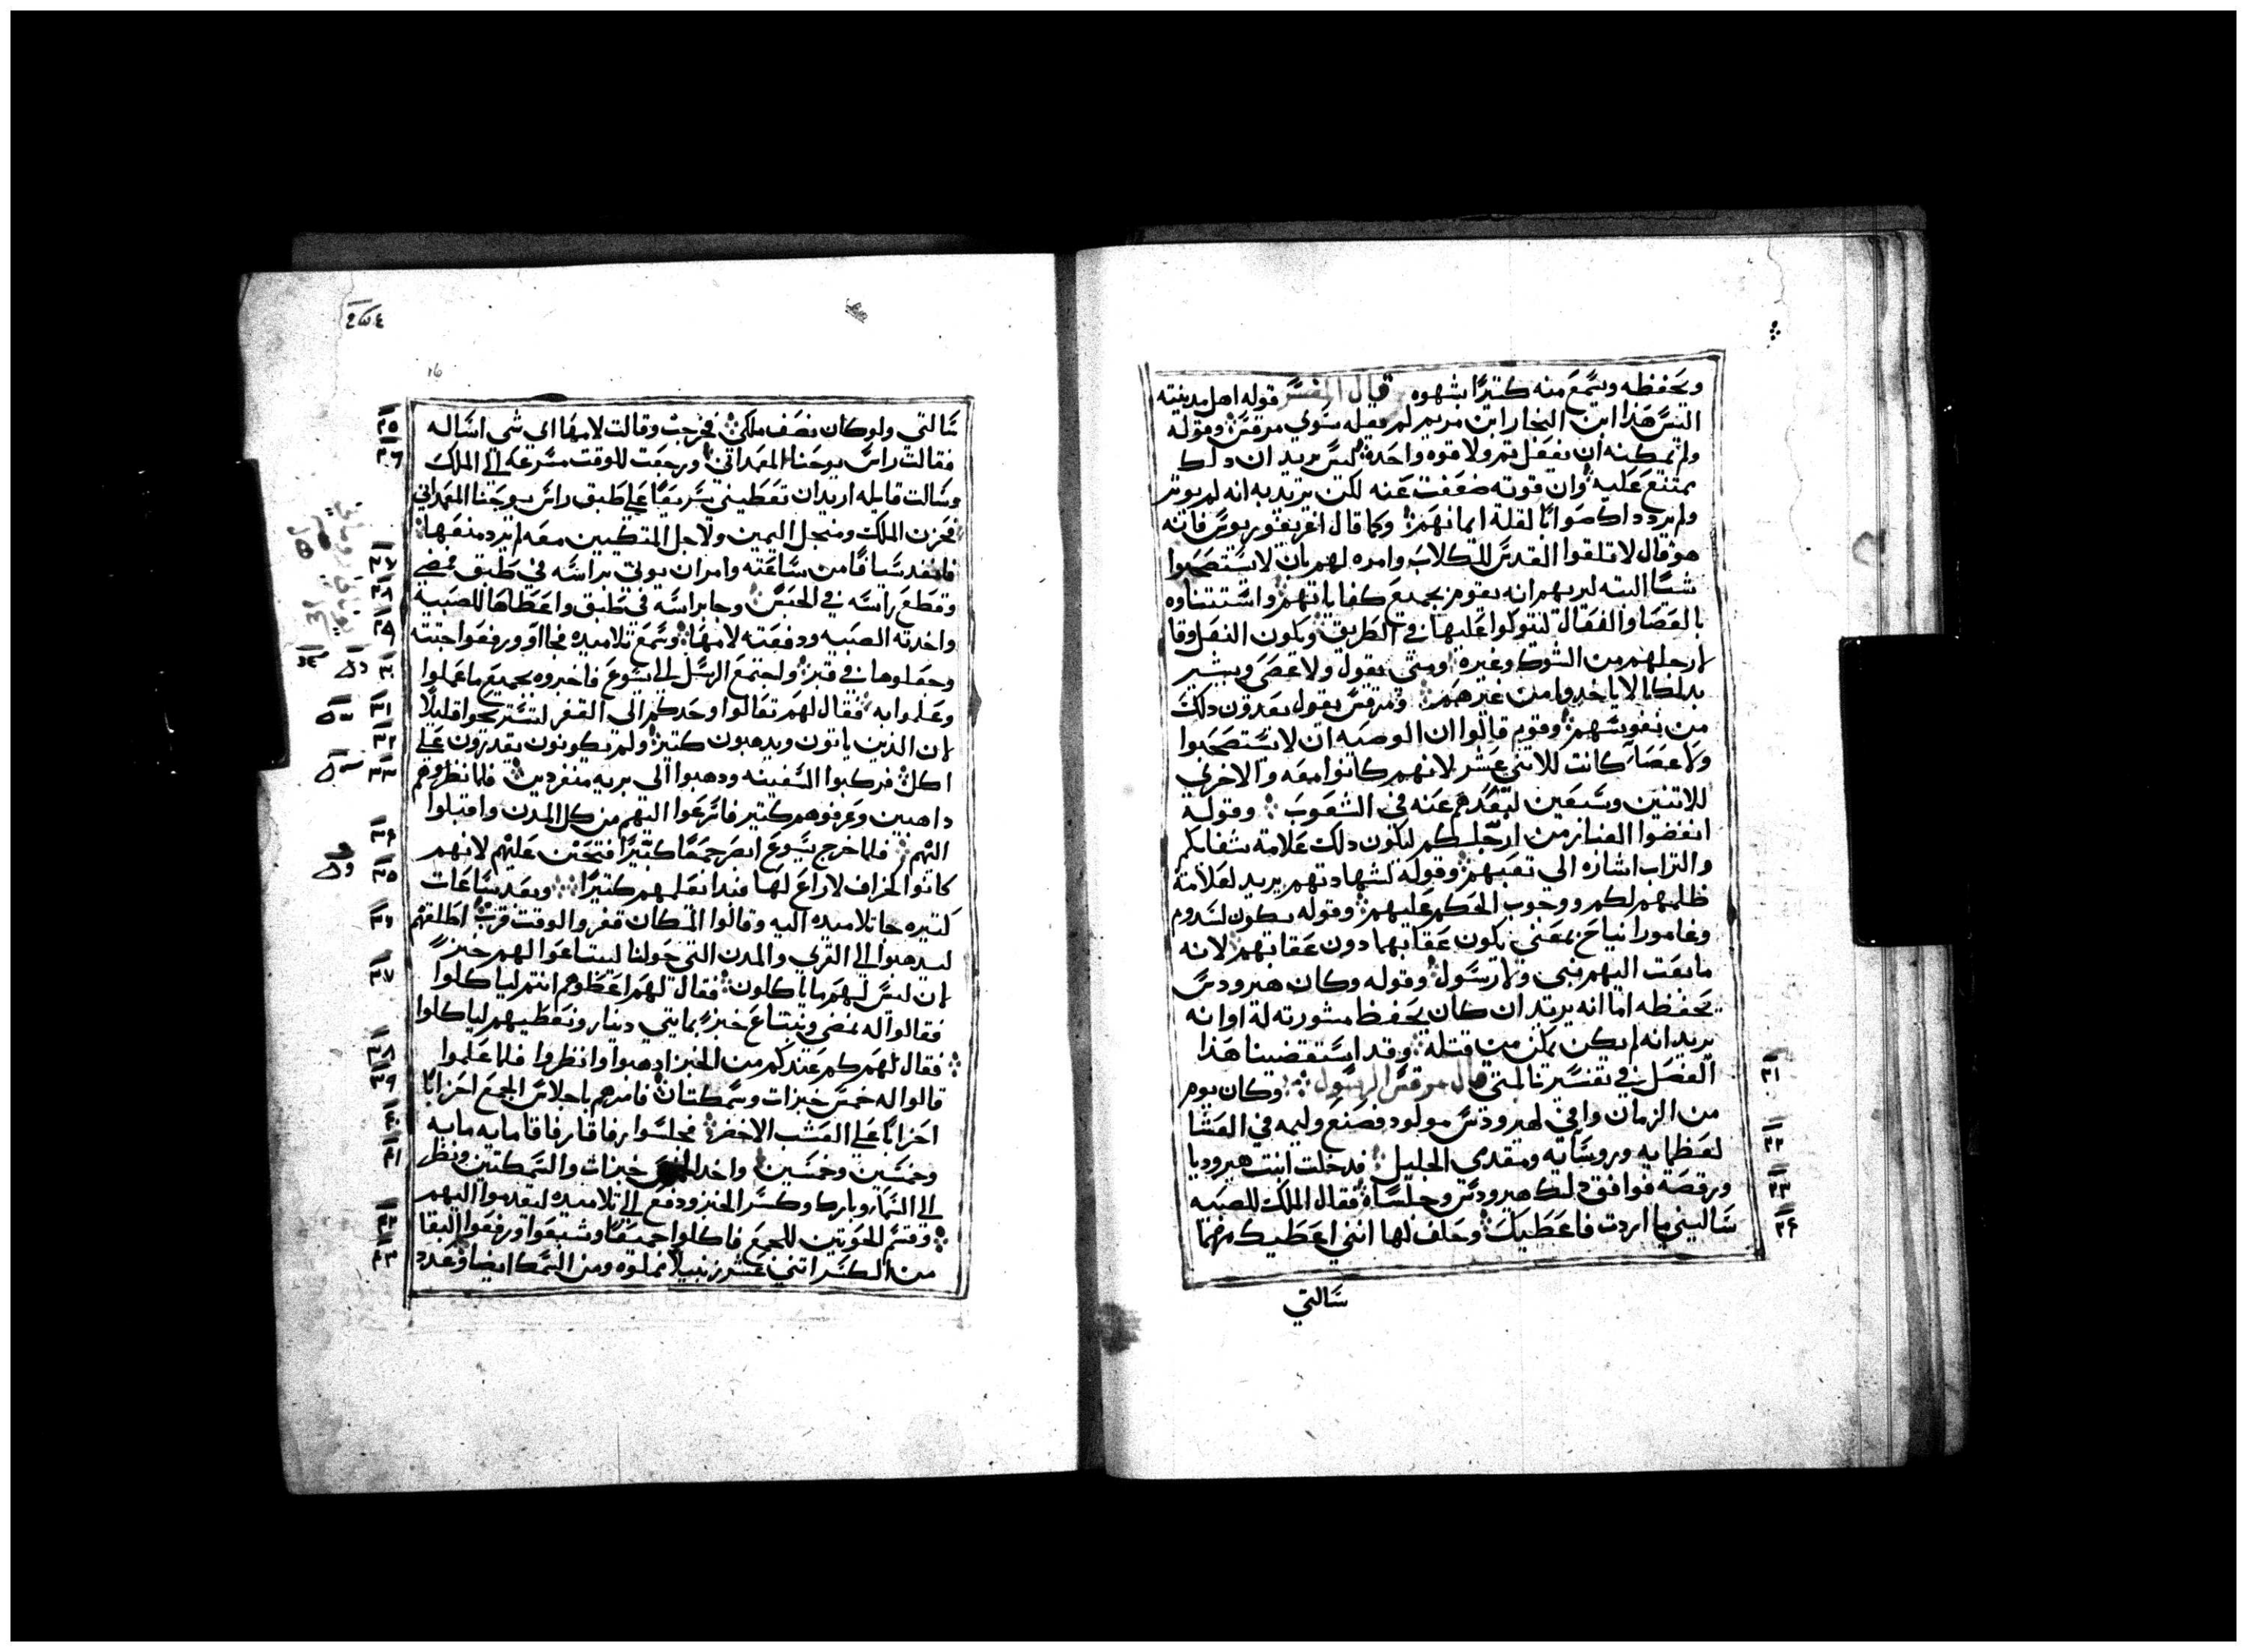 ويحفظه ويسمع منه كتيرًا بشهوه قال المفسر قوله اهل مدينته
اليس هذا ابن النجار ابن مريم لم يقله سوي مرقس وقوله
ولم يمكنه ان يفعل تم ولا قوه واحده ليس يريد ان دلك
يمتنع عليه وان قوته ضعفت عنه لكن يريد به انه لم يوتر
ولم يرد داك صوابًا لقلة ايمانهم وكما قال اغريغوريوس فانه
هو قال لا تلقوا القدس للكلاب وامره لهم بان لا يستصحبوا
شيًا البته ليريهم انه يقوم بجميع كفاياتهم واستتناوه
بالعصا والفعال ليتوكوا عليها في الطريق ويكون النعل وقا
لارجلهم من الشوك وغيره ومتى يقول ولا عصى ويشير
بدلك الا ياخدوا من غيرهم ومرقس يقول يعدون دلك
من نفوسهم وقوم قالوا ان الوصيه ان لا تستصحبوا
ولا عصا كانت للاتني عشر لانهم كانوا معه والاخرى
للاتنين وسبعين لبعدهم عنه في الشعوب وقوله
انفضوا الغبار من ارجلكم ليكون دلك علامة شقايكم
والتراب اشاره الي تعبهم وقوله لشهادتهم يريد لعلامة
ظلمهم لكم ووجوب الحكم عليهم وقوله يكون لسدوم
وغامورا نياح بمعنى يكون عقابهما دون عقابهم لانه
ما بعت اليهم نبي ولا رسول وقوله وكان هيرودس
يحفظه اما انه يريد ان كان يحفظ مشورته له او انه
يريد انه لم يكن يمكن من قتله وقد استقضينا هذا
الفصل في تفسيرنا لمتى قال مرقس الرسول وكان يوم
من الزمان وافي لهيرودس مولود فصنع وليمه في العشا
لعظمايه وروسايه ومقدمي الجليل فدخلت ابنت هيروديا
ورقصه فوافق دلك هيرودس وجلساه فقال الملك للصبيه
ساليني ما اردت فاعطيك وحلف لها انني اعطيك مهما
سالتي
٢١
٢٢
٢٣
٢٤
سالتي ولو كان نصف ملكي فخرجت وقالت لامها اي شي اساله
فقالت راس يوحنا المعمداني ورجعت للوقت مسرعه الي الملك
وسالت قايله اريد ان تعطيني سريعًا على طبق راس يوحنا المعمداني
فحزن الملك ومن اجل اليمين ولاجل المتكيين معه لم يرد منعها
فانفد سيافًا من ساعته وامر ان يوتى براسه في طبق فمضي
وقطع راسه في الحبس وجا براسه في طبق واعطاها للصبيه
واخدته الصبيه ودفعته لامها وسمع تلاميده فجااو ورفعوا جتته
وجعلوها في قبر واجتمع الرسل الي يسوع فاخبروه بجميع ما عملوا
وعلموا به فقال لهم تعالوا وحدكم الى القفر لتستريحوا قليلًا
لان الدين ياتون ويدهبون كتير ولم يكونون يقدرون على
اكل فركبوا السفينه ودهبوا الى بريه منفردين فلما نظروهم
داهبين وعرفوهم كتير فاسرعوا اليهم من كل المدن واقبلوا
اليهم فلما خرج يسوع ابصر جمعًا كتيرًا فتحنن عليهم لانهم
كانوا كخراف لا راع لها فبدا يعلمهم كتيرًا وبعد ساعات
كتيره جا تلاميده اليه وقالوا المكان قفر والوقت قرب اطلقهم
ليدهبوا الي القري والمدن التي حولنا ليبتاعوا لهم خبزً
لان ليس لهم ما ياكلون فقال لهم اعطوهم انتم لياكلوا
فقالوا له نمضي ونبتاع خبزً بمايتي دينار ونعطيهم لياكلوا
فقال لهم كم عندكم من الخبز ادهبوا وانظروا فلما علموا
قالوا له خمس خبزات وسمكتان فامرهم باجلاس الجمع احزابًا
احزابًا على العشب الاخضر فجلسوا رفاقا رفاقا مايه مايه
وخمسين وخمسين واخد الخمس خبزات والسمكتين ونظر
الي السما وبارك وكسر الخبز ودفع الي تلاميده ليقدموا اليهم
وقسم الحوتين للجمع فاكلوا جميعًا وشبعوا ورفعوا البقا
من الكسر اتني عشر زنبيلًا مملوه ومن السمك ايضا وعدد
٢٥
٢٦
٢٧
٢٨
٢٩
٣٠
٣١
٣٢
٣٣
٣٤
٣٥
٣٦
٣٧
٣٨
٣٩
٤٠
٤١
٤٢
٤٣